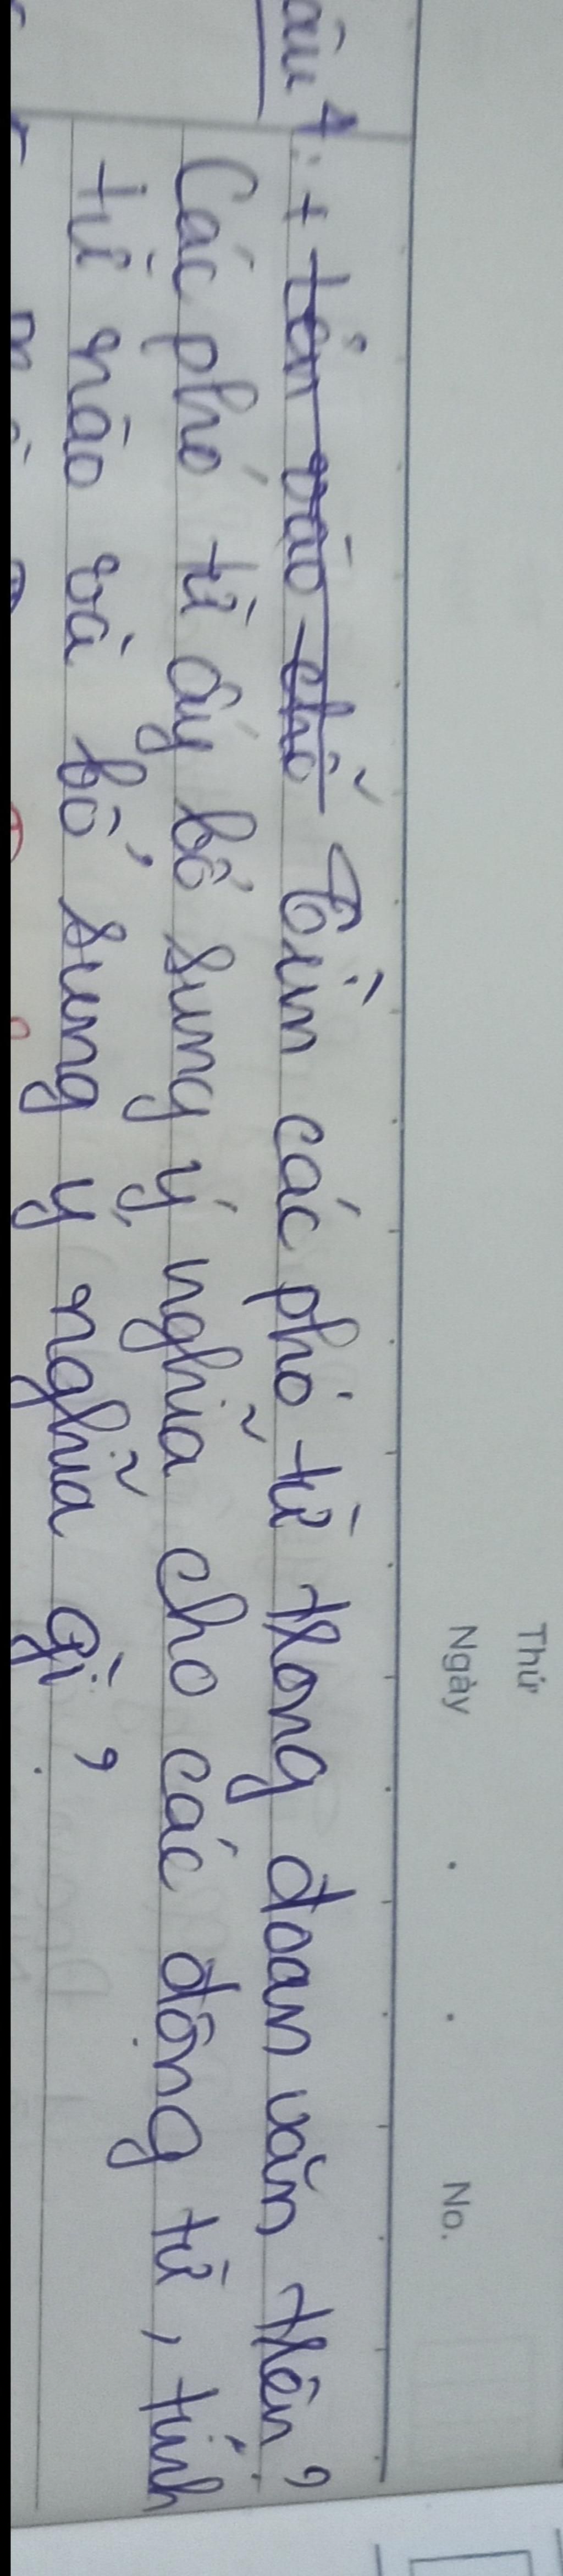 Thứ
Ngày . . No.
âu 4: + tên vào chỗ Tìm các phó từ trong đoan văn trên?
Các phó từ ấy bổ sung ý nghĩa cho các động từ, tính
từ nào và bổ sung ý nghĩa gì?